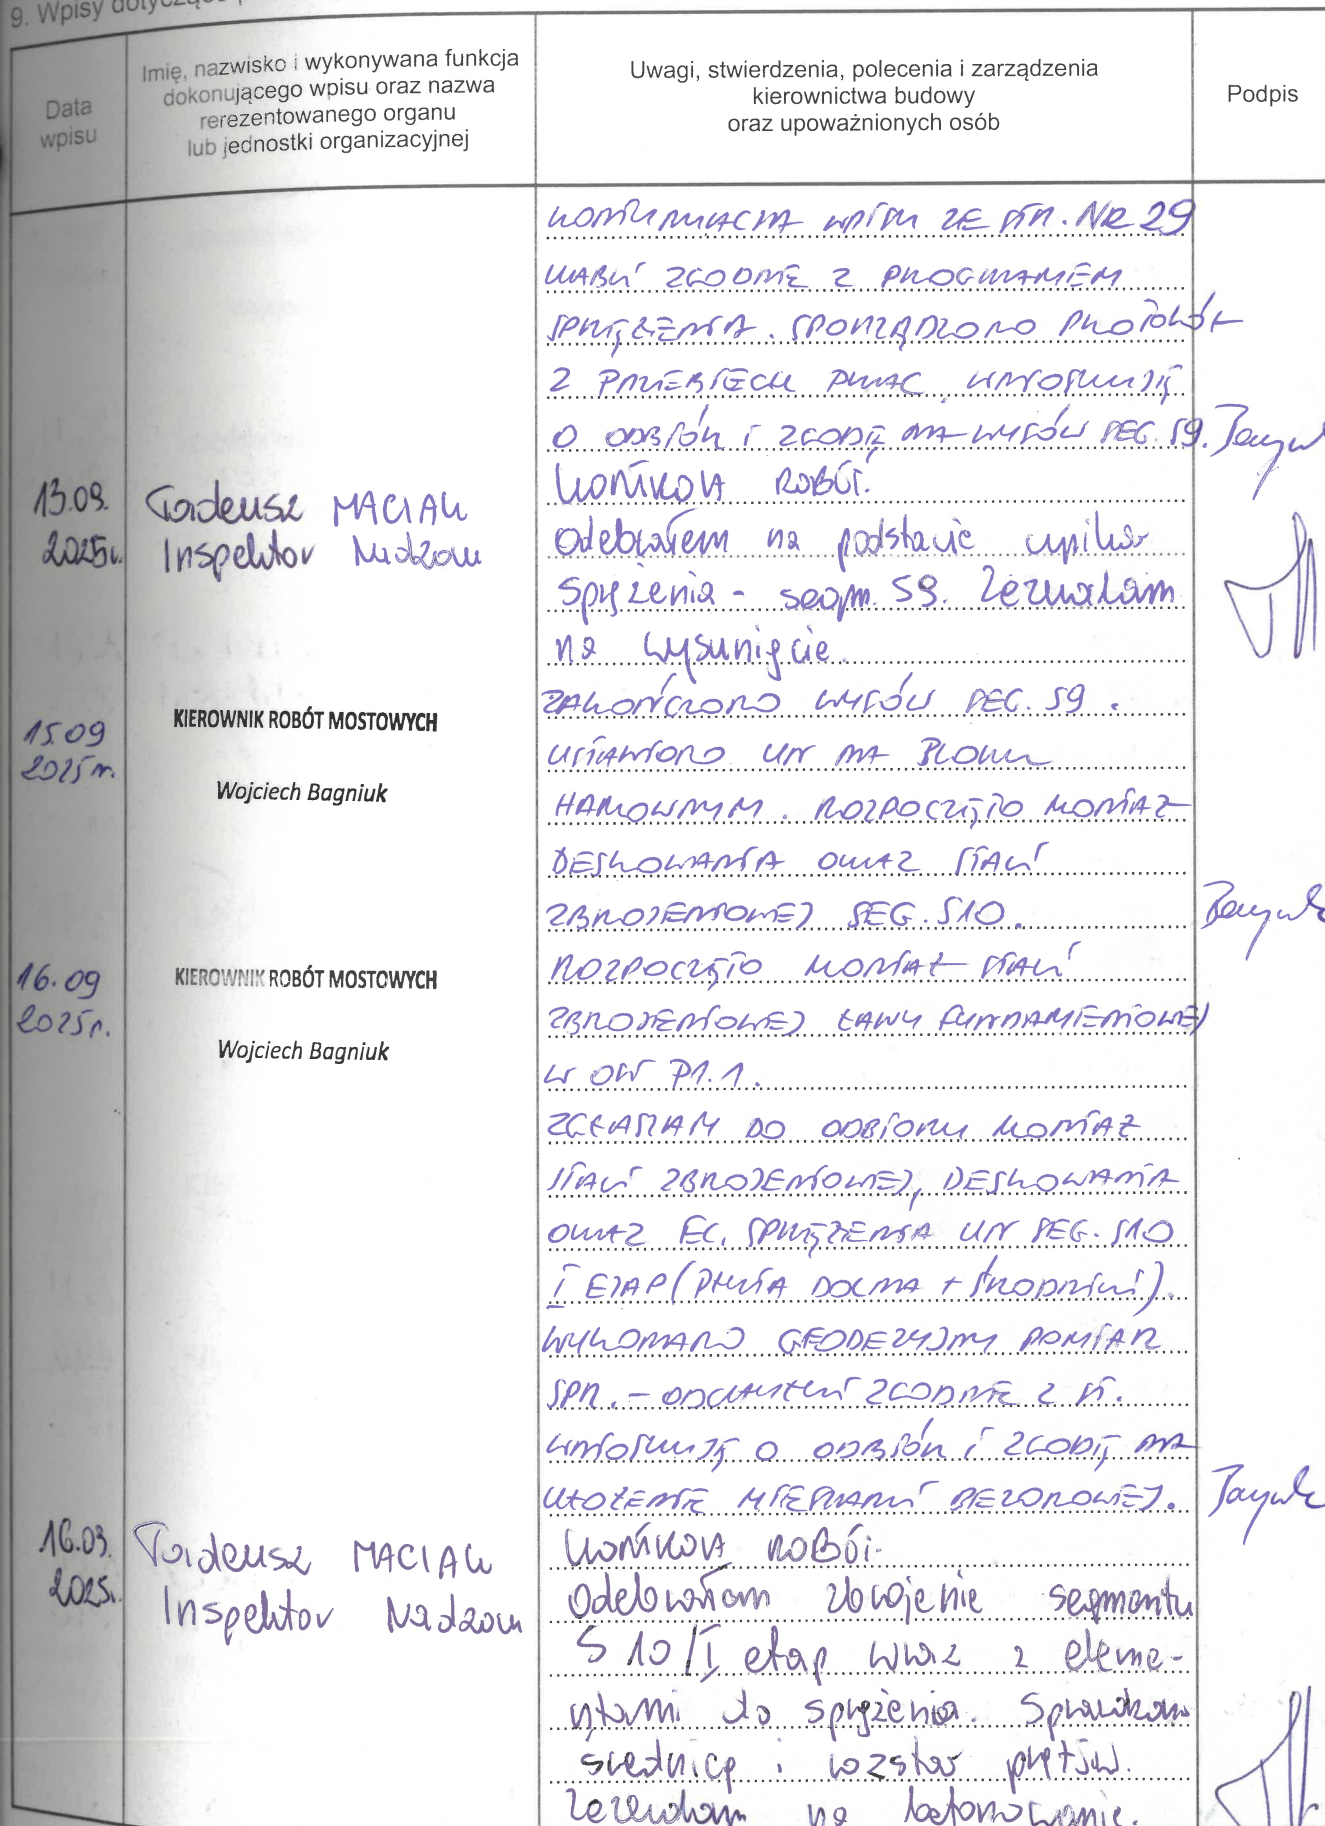 9. Wpisy dotyczące p
Data
wpisu
Imię, nazwisko i wykonywana funkcja
dokonującego wpisu oraz nazwa
rerezentowanego organu
lub jednostki organizacyjnej
Uwagi, stwierdzenia, polecenia i zarządzenia
kierownictwa budowy
oraz upoważnionych osób
Podpis
KONTYNUACJA WPISU ZE STR. NR 29
KABLI ZGODNIE Z PROGRAMEM
SPRĘŻENIA. SPORZĄDZONO PROTOKÓŁ
Z PRZEBIEGU PRAC. WNIOSKUJĘ
O ODBIÓR I ZGODĘ NA WYSÓW SEG. S9.
13.09.
2025r.
Tadeusz MACIAK
Inspektor Nadzoru
KONTROLA ROBÓT.
Odebrałem na podstawie wyników
sprężenia - segm. S9. Zezwalam
na wysunięcie.
15.09
2025 r.
KIEROWNIK ROBÓT MOSTOWYCH
Wojciech Bagniuk
ZAKOŃCZONO WYSÓW SEG. S9.
USTAWIONO UN NA BLOKU
HAMOWNYM. ROZPOCZĘTO MONTAŻ
DESKOWANIA ORAZ STALI
ZBROJENIOWEJ SEG. S10.
16.09
2025r.
KIEROWNIK ROBÓT MOSTOWYCH
Wojciech Bagniuk
ROZPOCZĘTO MONTAŻ STALI
ZBROJENIOWEJ ŁAWY FUNDAMENTOWEJ
W OW P1.1.
ZGŁASZAM DO ODBIORU MONTAŻ
STALI ZBROJENIOWEJ, DESKOWANIA
ORAZ EL. SPRĘŻENIA UN SEG. S10
I ETAP (PŁYTA DOLNA + ŚRODNIKI).
WYKONANO GEODEZYJNY POMIAR
SPR. - ODCHYŁKI ZGODNIE Z ST.
WNIOSKUJĘ O ODBIÓR I ZGODĘ NA
UŁOŻENIE MIESZANKI BETONOWEJ.
16.09.
2025r.
Tadeusz MACIAK
Inspektor Nadzoru
KONTROLA ROBÓT.
Odebrałem zbrojenie segmentu
S 10/I etap wraz z eleme-
ntami do sprężenia. Sprawdzono
średnicę i rozstaw prętów.
Zezwalam na betonowanie.